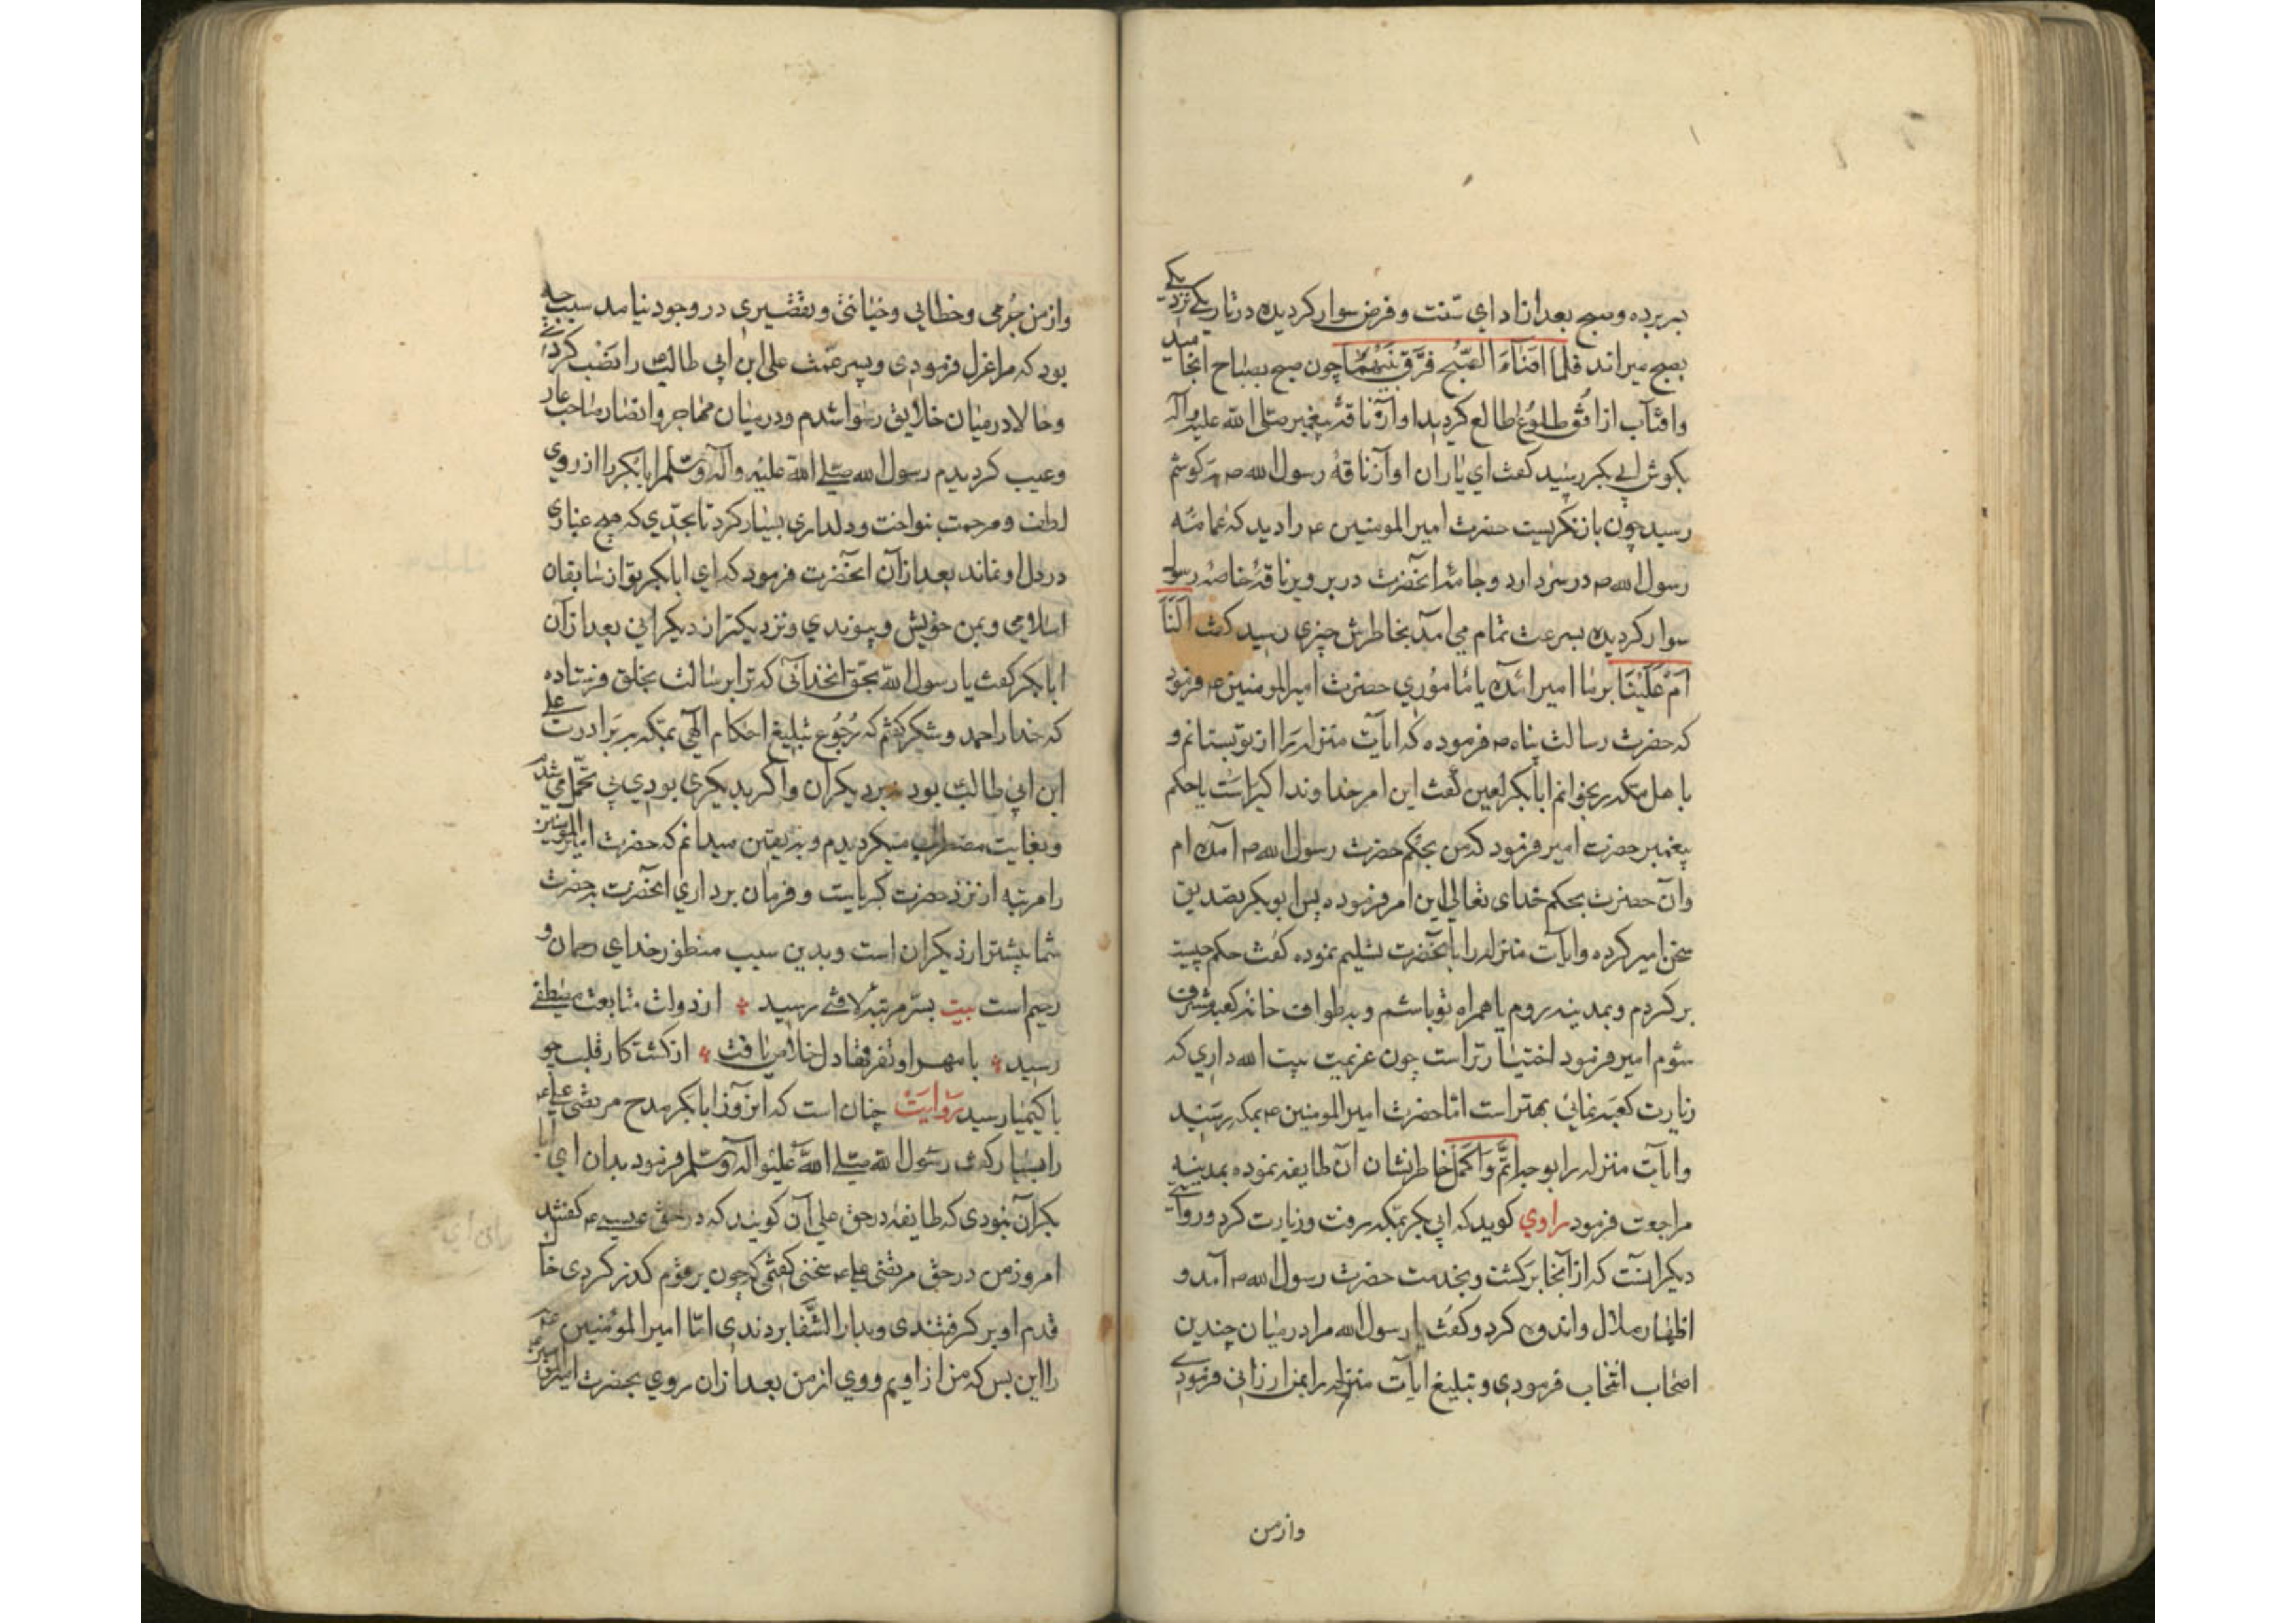 بسر برده وصبح بعد از ادای سنت و فرض سوار کردیده در تاریکی نزدیک
بصبح میراند فلما اضاء الصبح فرق بینهما چون صبح بصباح انجامید
وافتاب از افق طلوع طالع کردید اواز ناقهٔ پیغمبر صلی الله علیه وآله
بکوش ابی بکر رسید کفت ای یاران اواز ناقهٔ رسول الله ص بکوشم
رسید چون باز نکریست حضرت امیر المومنین ع را دید که عمامهٔ
رسول الله ص در سر دارد و جامهٔ انحضرت در بر و بر ناقهٔ خاصهٔ رسول
سوار کردیده بسرعت تمام می آمد بخاطرش چیزی رسید کفت النا
ام علینا بر ما امیر امدهٔ یا ماموری حضرت امیر المومنین ع فرمود
که حضرت رسالت پناه ص فرموده که ایات منزله را از تو بستانم و
با هل مکه بر بخوانم ابابکر لعین کفت این امر خداوند اکبر است یا حکم
پیغمبر حضرت امیر فرمود که من بحکم حضرت رسول الله ص آمده ام
وآن حضرت بحکم خدای تعالی این امر فرموده پس ابوبکر تصدیق
سخن امیر کرده وایات منزله را با نحضرت تسلیم نموده کفت حکم چیست
بر کردم و بمدینه روم یا همراه تو باشم و بطواف خانه کعبه مشرف
شوم امیر فرمود اختیار تراست چون عزیمت بیت الله داری که
زیارت کعبه نمائی بهتر است اما حضرت امیر المومنین ع بمکه رسید
وایات منزله را بوجه اتم واکمل خاطر نشان آن طایفه نموده بمدینه
مراجعت فرمود راوی کوید که ابی بکر بمکه برفت وزیارت کرد وروایت
دیکر انست که از آنجا برکشت و بخدمت حضرت رسول الله ص آمد و
اظهار ملال واندوه کرد و کفت یا رسول الله مرا در میان چندین
اصحاب انتخاب فرمودی و تبلیغ ایات منزله را بمن ارزانی فرمودی
وازمن
وازمن جرمی و خطایی و خیانتی و تقصیری در وجود نیامد سبب چه
بود که مرا عزل فرمودی و پسر عمت علی ابن ابی طالب را نصب کردی
وحالا در میان خلایق رسوا شدم و در میان مهاجر وانصار صاحب عار
وعیب کردیدم رسول الله صلی الله علیه وآله وسلم ابابکر را از روی
لطف و مرحمت بنواخت و دلداری بسیار کرد تا بحدی که هیچ غباری
در دل او نماند بعد از آن انحضرت فرمود که ای ابابکر تو از سابقان
اسلامی و بمن خویش و پیوندی و نزدیکتر از دیکرانی بعد از آن
ابابکر کفت یا رسول الله بحق انخدائی که ترا برسالت بخلق فرستاده
که خدا را حمد و شکر کفتم که رجوع تبلیغ احکام الهی بمکه بر برادرت علی
ابن ابی طالب بود بردیکران واکر بدیکری بودی بی تحمل می شدم
وبغایت مضطرب میکردیدم و به یقین میدانم که حضرت امیر المؤمنین
را مرتبه از نزد حضرت کبریاست و فرمان برداری انحضرت بحضرت
شما بیشتر از دیکران است و بدین سبب منظور خدای رحمان و
رحیم است بیت بسر مرتبهٔ لافتی رسید از دولت متابعت مصطفی
رسید با مهر او نقد دل خلاص یافت از کشت کار قلب چو
با کیمیا رسید روایت چنان است که انروز ابابکر مدح مرتضی علی ع
را بسیار کرد رسول الله صلی الله علیه وآله وسلم فرمود بدان ای ابا
بکر آن نبودی که طایفه در حق علی آن کویند که در حق عیسی ع کفتند
امروز من در حق مرتضی علی ع سخنی کفتمی که چون بر قوم کذر کردی خا
قدم او بر کرفتندی و بدار الشفا بردندی اما امیر المؤمنین ع
را این بس که من از اویم و وی از من بعد از ان روی بحضرت امیر المؤمنین